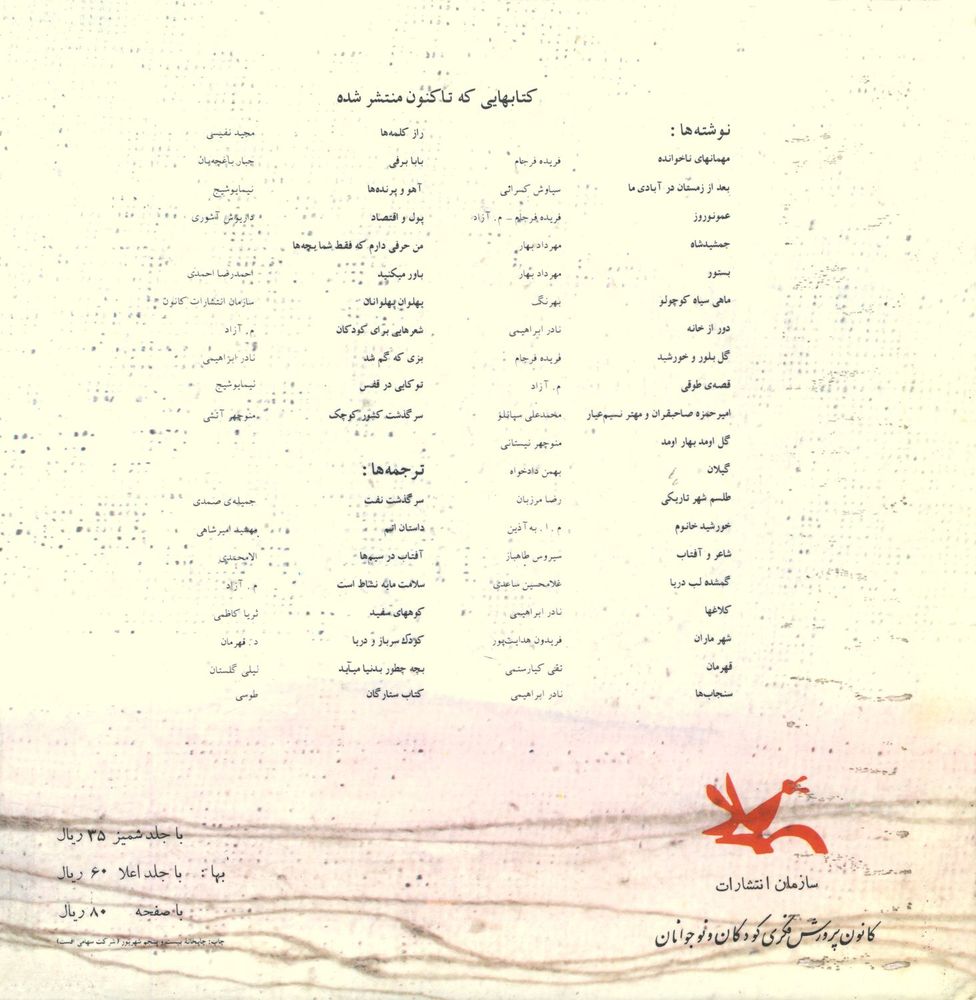 کتابهایی که تاکنون منتشر شده
نوشته‌ها :
مهمانهای ناخوانده فریده فرجام
بعد از زمستان در آبادی ما سیاوش کسرائی
عمونوروز فریده فرجام - م. آزاد
جمشیدشاه مهرداد بهار
بستور مهرداد بهار
ماهی سیاه کوچولو بهرنگ
دور از خانه نادر ابراهیمی
گل بلور و خورشید فریده فرجام
قصه‌ی طوقی م. آزاد
امیرحمزه صاحبقران و مهتر نسیم‌عیار محمدعلی سپانلو
گل اومد بهار اومد منوچهر نیستانی
گیلان بهمن دادخواه
طلسم شهر تاریکی رضا مرزبان
خورشید خانوم م. ا. به‌آذین
شاعر و آفتاب سیروس طاهباز
گمشده لب دریا غلامحسین ساعدی
کلاغها نادر ابراهیمی
شهر ماران فریدون هدایت‌پور
قهرمان تقی کیارستمی
سنجاب‌ها نادر ابراهیمی
راز کلمه‌ها مجید نفیسی
بابا برفی جبار باغچه‌بان
آهو و پرنده‌ها نیمایوشیج
پول و اقتصاد داریوش آشوری
من حرفی دارم که فقط شما بچه‌ها
باور میکنید احمدرضا احمدی
پهلوان پهلوانان سازمان انتشارات کانون
شعرهایی برای کودکان م. آزاد
بزی که گم شد نادر ابراهیمی
توکایی در قفس نیمایوشیج
سرگذشت کشور کوچک منوچهر آتشی
ترجمه‌ها :
سرگذشت نفت جمیله‌ی صمدی
داستان اتم مهشید امیرشاهی
آفتاب در سیم‌ها الامحمدی
سلامت مایه نشاط است م. آزاد
کوههای سفید ثریا کاظمی
کودك سرباز و دریا د. قهرمان
بچه چطور بدنیا میآید لیلی گلستان
کتاب ستارگان طوسی
سازمان انتشارات
کانون پرورش فکری کودکان و نوجوانان
با جلد شمیز ۳۵ ریال
بها : با جلد اعلا ۶۰ ریال
با صفحه ۸۰ ریال
چاپ: چاپخانه بیست و پنجم شهریور (شرکت سهامی افست)